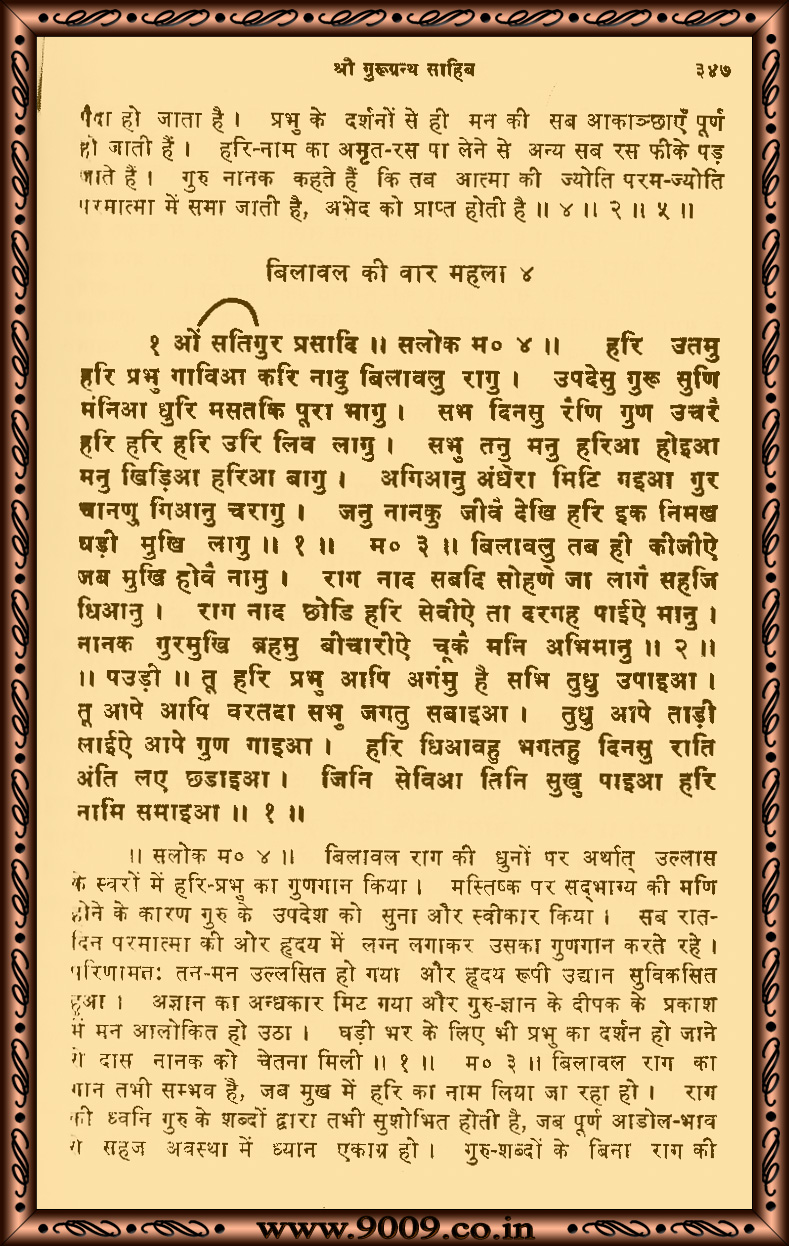 श्री गुरूग्रन्थ साहिब ३४७
पैदा हो जाता है। प्रभु के दर्शनों से ही मन की सब आकाञ्छाएँ पूर्ण
हो जाती हैं। हरि-नाम का अमृत-रस पा लेने से अन्य सब रस फीके पड़
जाते हैं। गुरु नानक कहते हैं कि तब आत्मा की ज्योति परम-ज्योति
परमात्मा में समा जाती है, अभेद को प्राप्त होती है॥ ४॥ २॥ ५॥
बिलावल की वार महला ४
१ ओं सतिगुर प्रसादि॥ सलोक म० ४॥ हरि उतमु
हरि प्रभु गाविआ करि नादु बिलावलु रागु। उपदेसु गुरू सुणि
मंनिआ धुरि मसतकि पूरा भागु। सभ दिनसु रैणि गुण उचरै
हरि हरि हरि उरि लिव लागु। सभु तनु मनु हरिआ होइआ
मनु खिड़िआ हरिआ बागु। अगिआनु अंधेरा मिटि गइआ गुर
चानणु गिआनु चरागु। जनु नानकु जीवै देखि हरि इक निमख
घड़ी मुखि लागु॥ १॥ म० ३॥ बिलावलु तब ही कीजीऐ
जब मुखि होवै नामु। राग नाद सबदि सोहणे जा लागै सहजि
धिआनु। राग नाद छोडि हरि सेवीऐ ता दरगह पाईऐ मानु।
नानक गुरमुखि ब्रहमु बीचारीऐ चूकै मनि अभिमानु॥ २॥
॥ पउड़ी॥ तू हरि प्रभु आपि अगंमु है सभि तुधु उपाइआ।
तू आपे आपि वरतदा सभु जगतु सबाइआ। तुधु आपे ताड़ी
लाईऐ आपे गुण गाइआ। हरि धिआवहु भगतहु दिनसु राति
अंति लए छडाइआ। जिनि सेविआ तिनि सुखु पाइआ हरि
नामि समाइआ॥ १॥
॥ सलोक म० ४॥ बिलावल राग की धुनों पर अर्थात् उल्लास
के स्वरों में हरि-प्रभु का गुणगान किया। मस्तिष्क पर सद्भाग्य की मणि
होने के कारण गुरु के उपदेश को सुना और स्वीकार किया। सब रात-
दिन परमात्मा की ओर हृदय में लग्न लगाकर उसका गुणगान करते रहे।
परिणामतः तन-मन उल्लसित हो गया और हृदय रूपी उद्यान सुविकसित
हुआ। अज्ञान का अन्धकार मिट गया और गुरु-ज्ञान के दीपक के प्रकाश
में मन आलोकित हो उठा। घड़ी भर के लिए भी प्रभु का दर्शन हो जाने
से दास नानक को चेतना मिली॥ १॥ म० ३॥ बिलावल राग का
गान तभी सम्भव है, जब मुख में हरि का नाम लिया जा रहा हो। राग
की ध्वनि गुरु के शब्दों द्वारा तभी सुशोभित होती है, जब पूर्ण आडोल-भाव
से सहज अवस्था में ध्यान एकाग्र हो। गुरु-शब्दों के बिना राग की
www.9009.co.in